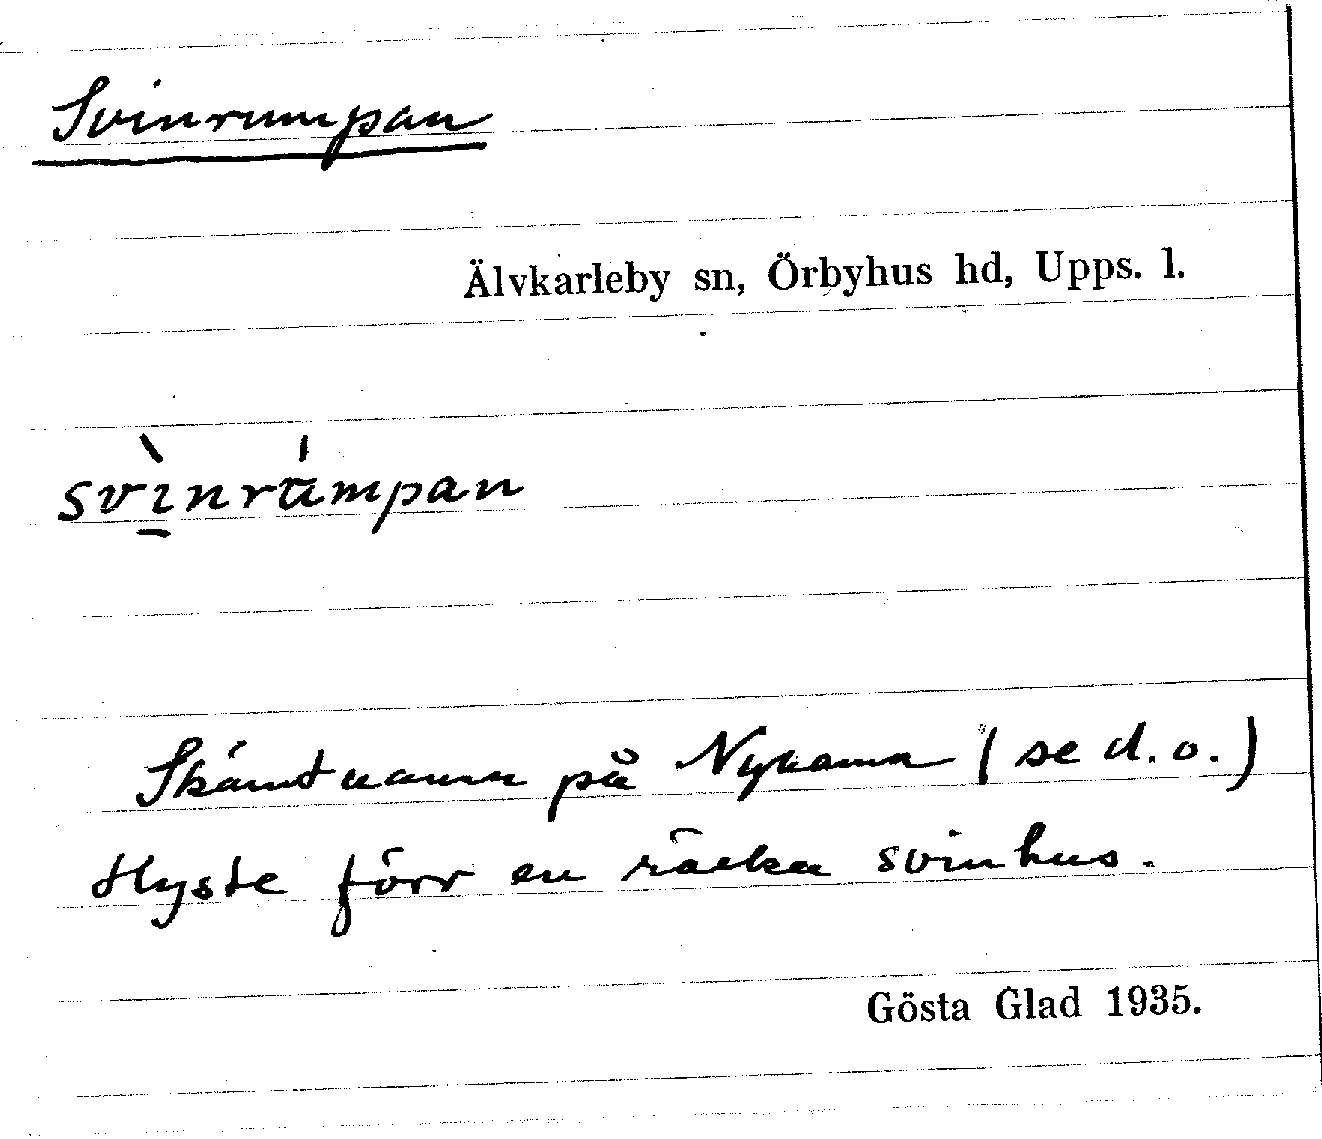 Svinrumpan
Älvkarleby sn, Örbyhus hd, Upps. l.
svìnrùmpan
Skämtnamn på Nykarna (se d.o.)
Hyste förr en räcka svinhus.
Gösta Glad 1935.